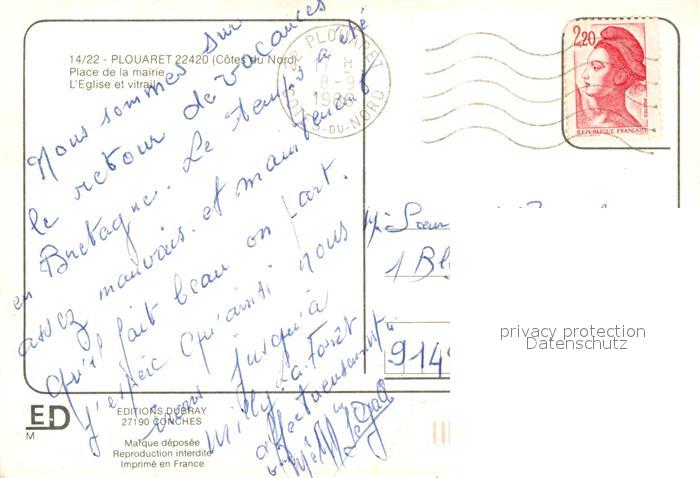 14/22 - PLOUARET 22420 (Côtes du Nord)
Place de la mairie
L'Eglise et vitrail
Nous sommes sur
le retour de vacances
en Bretagne. Le temps a été
assez mauvais et maintenant
qu'il fait beau on part.
J'espère qu'ainsi nous
irons jusqu'à
Milly-la-Foret
affectueusement
PLOUARET
H
8-9
CÔTES-DU-NORD
2,20
REPUBLIQUE FRANÇAISE
Sœur
1 Bl
914
privacy protection
Datenschutz
ED
M
EDITIONS DUBRAY
27190 CONCHES
Marque déposée
Reproduction interdite
Imprimé en France